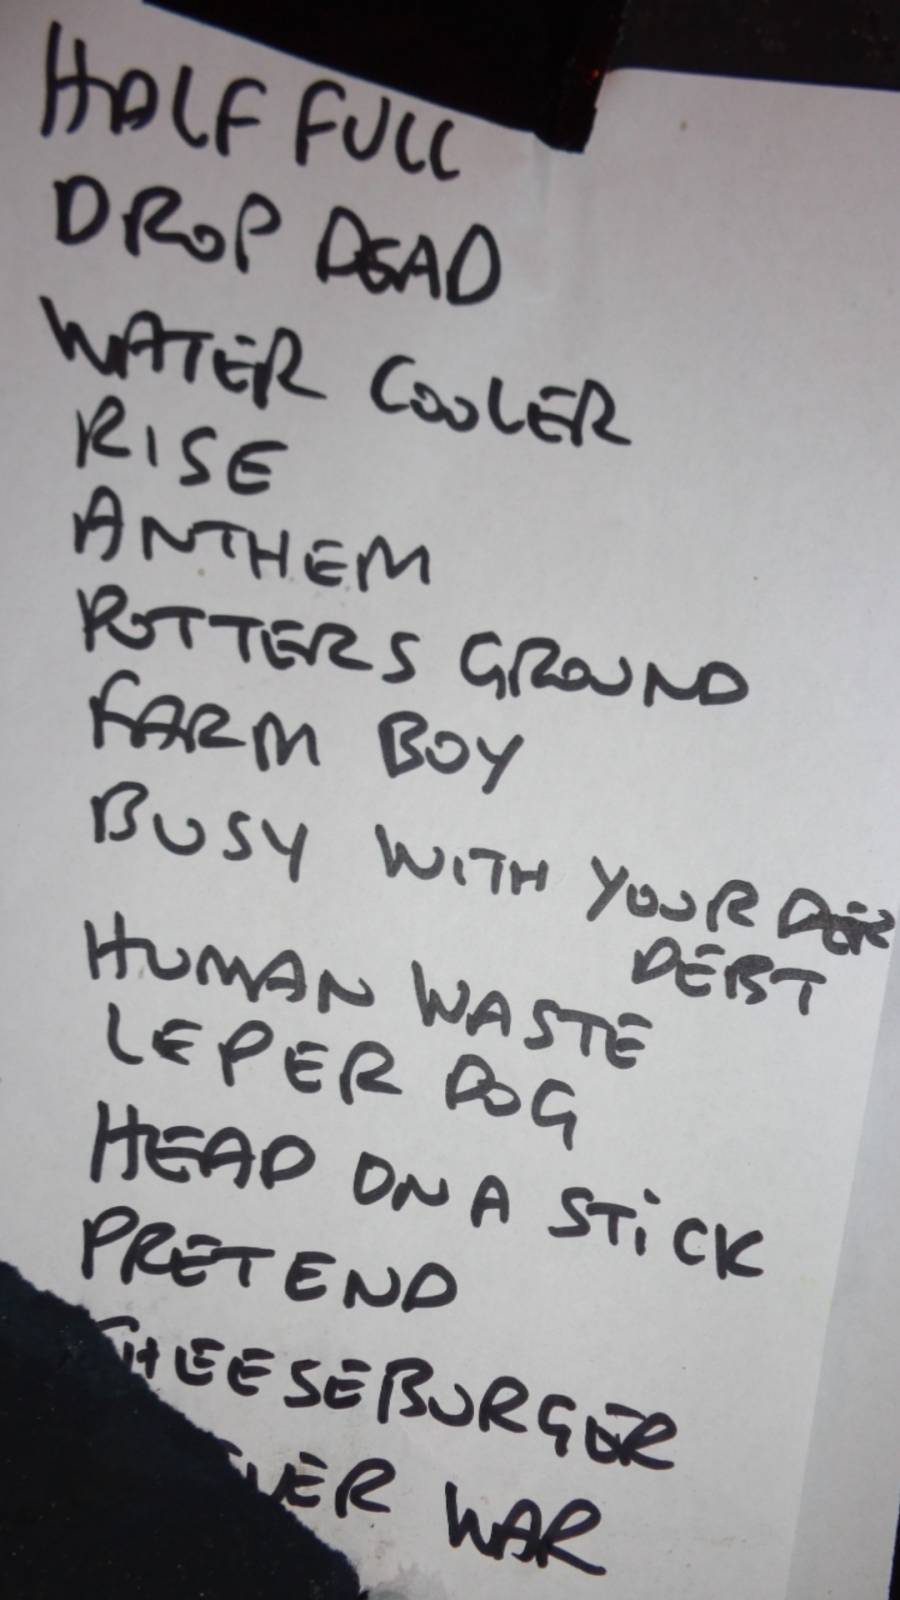 HALF FULL
DROP DEAD
WATER COOLER
RISE
ANTHEM
POTTERS GROUND
FARM BOY
BUSY WITH YOUR
DEBT
HUMAN WASTE
LEPER DOG
HEAD ON A STICK
PRETEND
CHEESEBURGER
WAR